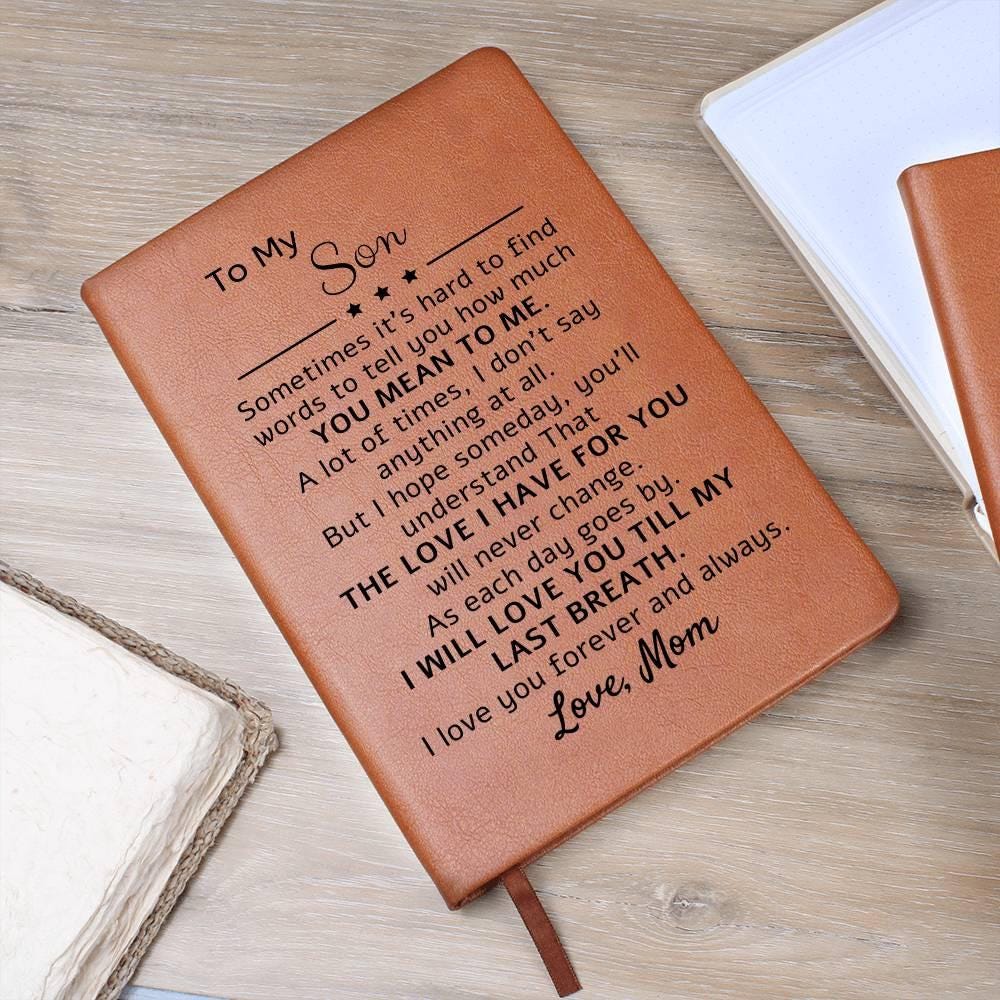 To My Son
Sometimes it's hard to find
words to tell you how much
YOU MEAN TO ME.
A lot of times, I don't say
anything at all.
But I hope someday, you'll
understand That
THE LOVE I HAVE FOR YOU
will never change.
As each day goes by.
I WILL LOVE YOU TILL MY
LAST BREATH.
I love you forever and always.
Love, Mom